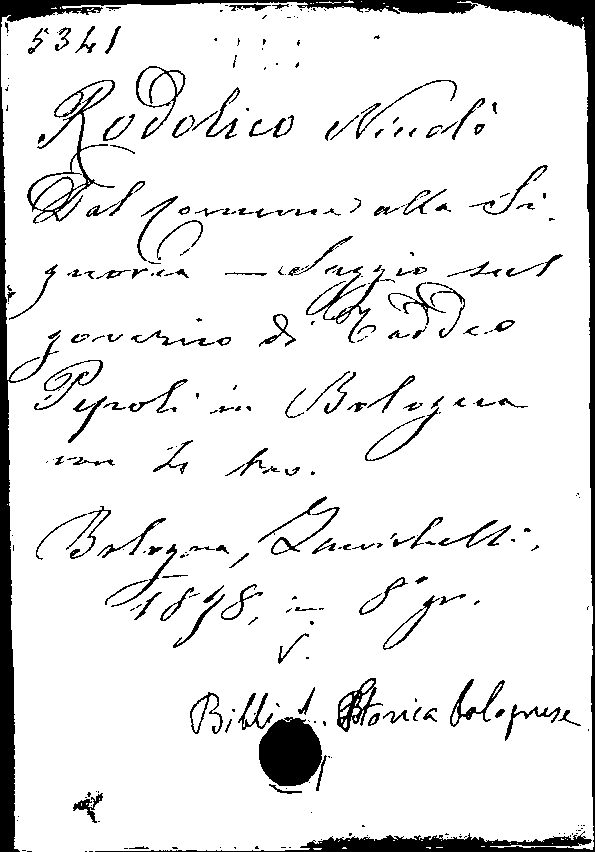 5341
Rodolico Niccolò
Dal comune alla Si-
gnoria — Saggio sul
governo di Taddeo
Pepoli in Bologna
con
Bologna, Zanichelli,
1898, in 8° gr.
V.
Storica bolognese